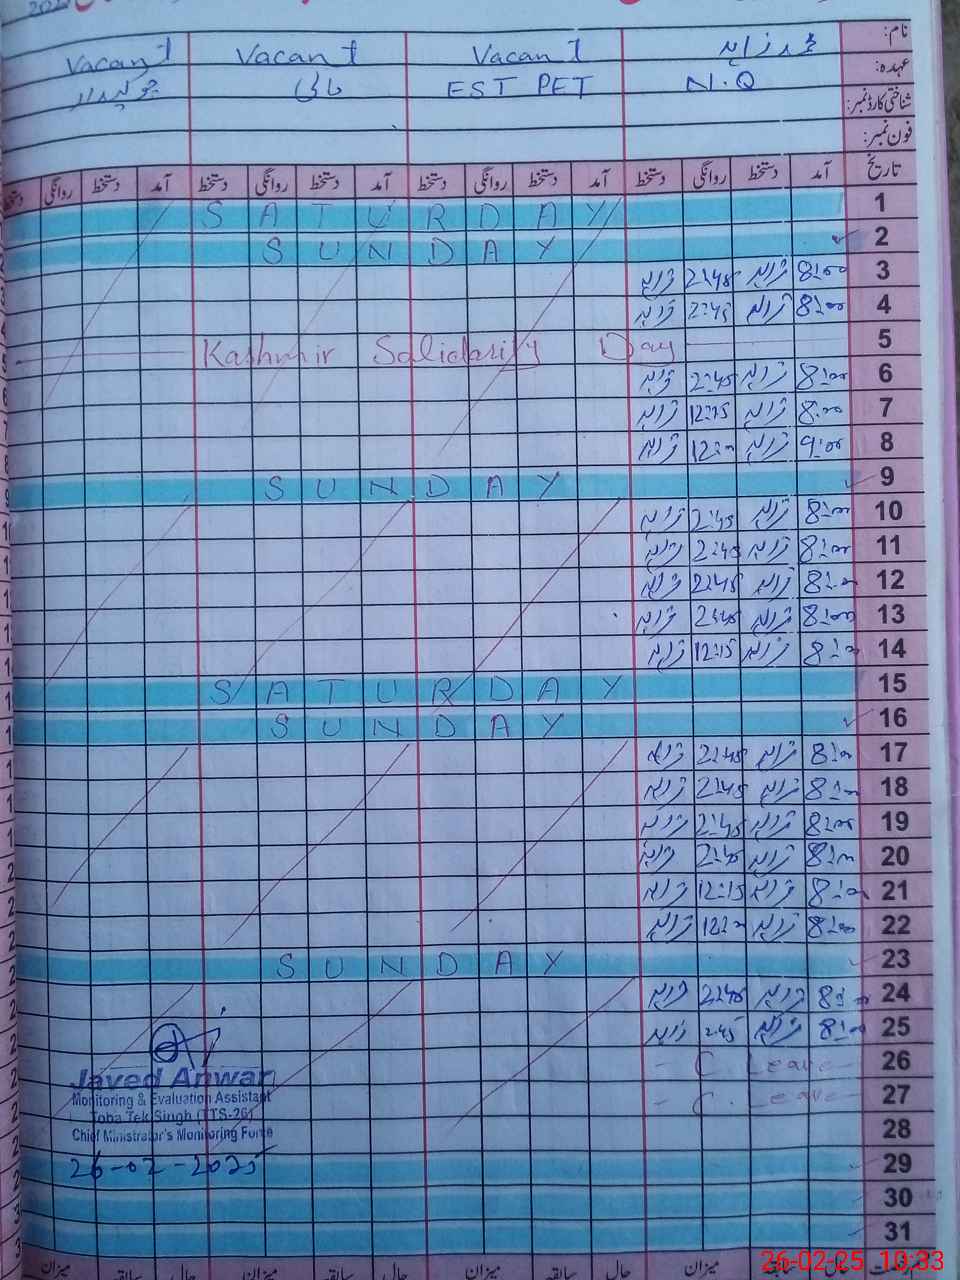 نام:
Vacant Vacant Vacant محمد زاہد
عہدہ:
چوکیدار مالی EST PET N.Q
شناختی کارڈ نمبر:
فون نمبر:
تاریخ آمد دستخط روانگی دستخط آمد دستخط روانگی دستخط آمد دستخط روانگی دستخط آمد دستخط روانگی
1 SATURDAY
2 SUNDAY
3 8:00 زاہد 2:45 زاہد
4 8:00 زاہد 2:45 زاہد
5 Kashmir Solidarity Day
6 8:00 زاہد 2:45 زاہد
7 8:00 زاہد 12:15 زاہد
8 9:00 زاہد 12:00 زاہد
9 SUNDAY
10 8:00 زاہد 2:45 زاہد
11 8:00 زاہد 2:45 زاہد
12 8:00 زاہد 2:45 زاہد
13 8:00 زاہد 2:45 زاہد
14 8:00 زاہد 12:15 زاہد
15 SATURDAY
16 SUNDAY
17 8:00 زاہد 2:45 زاہد
18 8:00 زاہد 2:45 زاہد
19 8:00 زاہد 2:45 زاہد
20 8:00 زاہد 2:45 زاہد
21 8:00 زاہد 12:15 زاہد
22 8:00 زاہد 12:00 زاہد
23 SUNDAY
24 8:00 زاہد 2:45 زاہد
25 8:00 زاہد 2:45 زاہد
26 - C. Leave
27 - C. Leave
28
29
30
31
Javed Anwar
Monitoring & Evaluation Assistant
Toba Tek Singh (TTS-26)
Chief Minister's Monitoring Force
26-02-2025
حال سابقہ میزان حال سابقہ میزان حال سابقہ میزان
26-02-25 10:33